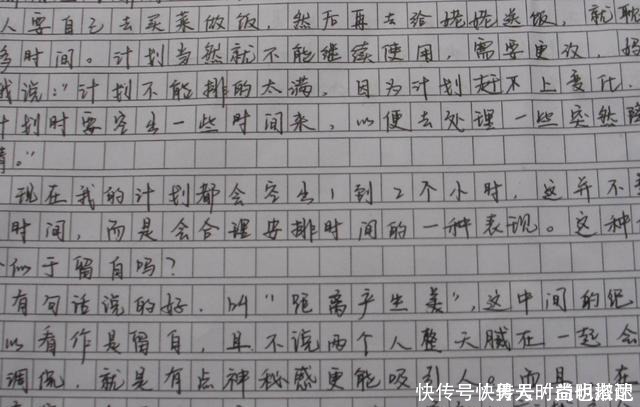 人要自己去买菜做饭，然后再去给姥姥送饭，就耽
多时间。计划当然就不能继续使用，需要更改，妈
我说：“计划不能排的太满，因为计划赶不上变化
计划时要空出一些时间来，以便去处理一些突然
情。”
现在我的计划都会空出1到2个小时，这并不
时间，而是会合理安排时间的一种表现。这种
似于留白吗？
有句话说的好，叫“距离产生美”，这中间的
以看作是留白，且不说两个人整天腻在一起会
调侃，就是有点神秘感更能吸引人。而且，在
快传号